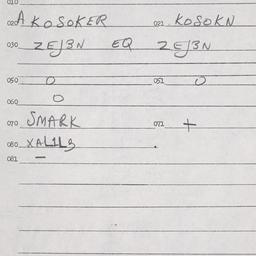 010
020 A KOSOKER 021 KOSOKN
030 ZEJ3N EQ ZEJ3N
050 0 051 0
060 0
070 SMARK 071 +
080 XAL1L3 .
081 -